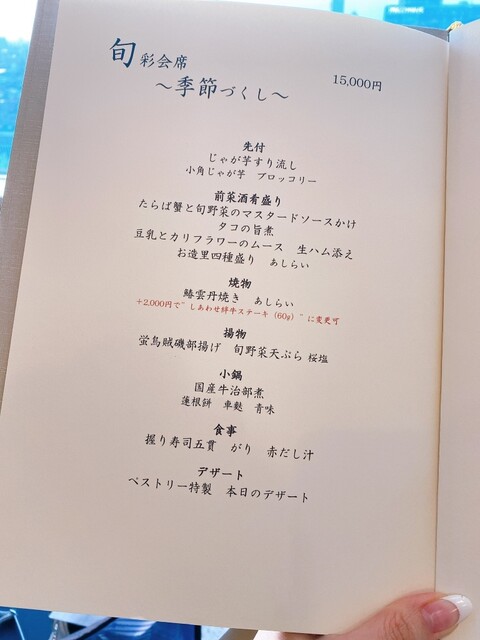 旬彩会席
～季節づくし～
15,000円
先付
じゃが芋すり流し
小角じゃが芋　ブロッコリー
前菜酒肴盛り
たらば蟹と旬野菜のマスタードソースかけ
タコの旨煮
豆乳とカリフラワーのムース　生ハム添え
お造里四種盛り　あしらい
焼物
鰆雲丹焼き　あしらい
+2,000円で"しあわせ絆牛ステーキ（60g）"に変更可
揚物
蛍烏賊磯部揚げ　旬野菜天ぷら 桜塩
小鍋
国産牛治部煮
蓮根餅　車麩　青味
食事
握り寿司五貫　がり　赤だし汁
デザート
ペストリー特製　本日のデザート